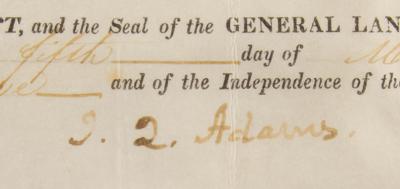 T, and the Seal of the GENERAL LAN
fifth day of M
and of the Independence of the
J. Q. Adams.